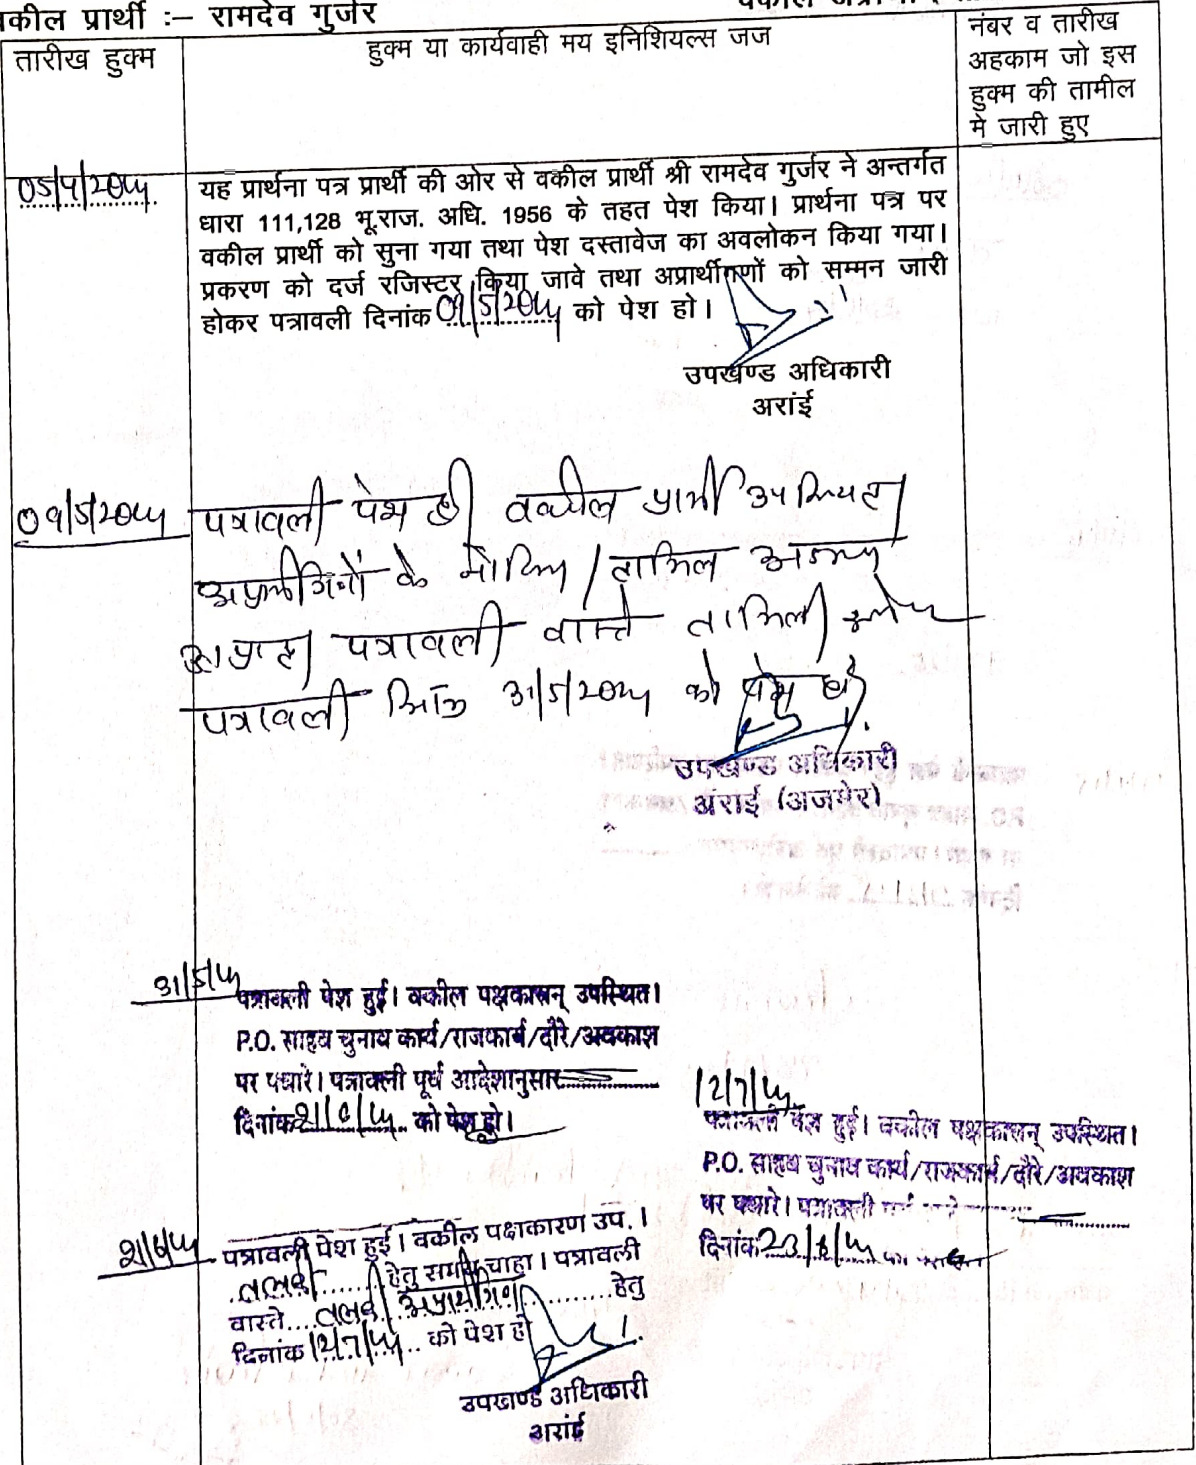 वकील प्रार्थी :– रामदेव गुर्जर
तारीख हुक्म
हुक्म या कार्यवाही मय इनिशियल्स जज
नंबर व तारीख
अहकाम जो इस
हुक्म की तामील
मे जारी हुए
05/4/2024
यह प्रार्थना पत्र प्रार्थी की ओर से वकील प्रार्थी श्री रामदेव गुर्जर ने अन्तर्गत
धारा 111,128 भू.राज. अधि. 1956 के तहत पेश किया। प्रार्थना पत्र पर
वकील प्रार्थी को सुना गया तथा पेश दस्तावेज का अवलोकन किया गया।
प्रकरण को दर्ज रजिस्टर किया जावे तथा अप्रार्थीगणों को सम्मन जारी
होकर पत्रावली दिनांक 09/5/2024 को पेश हो।
उपखण्ड अधिकारी
अरांई
09/5/2024
पत्रावली पेश हुई वकील प्रार्थी उपस्थित।
के / तामिल
पत्रावली वास्ते तामिली
पत्रावली 31/5/2024 को पेश हो
उपखण्ड अधिकारी
अंराई (अजमेर)
31/5/24
पत्रावली पेश हुई। वकील पक्षकारान् उपस्थित।
P.O. साहब चुनाव कार्य/राजकार्य/दौरे/अवकाश
पर पधारे। पत्रावली पूर्व आदेशानुसार
दिनांक 21/6/24 को पेश हो।
21/6/24
पत्रावली पेश हुई। वकील पक्षकारण उप.।
तलबी हेतु समय चाहा। पत्रावली
वास्ते तलबी अप्रार्थीगण हेतु
दिनांक 12/7/24 को पेश हो
उपखण्ड अधिकारी
अरांई
12/7/24
पत्रावली पेश हुई। वकील पक्षकारान् उपस्थित।
P.O. साहब चुनाव कार्य/राजकार्य/दौरे/अवकाश
पर पधारे। पत्रावली
दिनांक 23/8/24